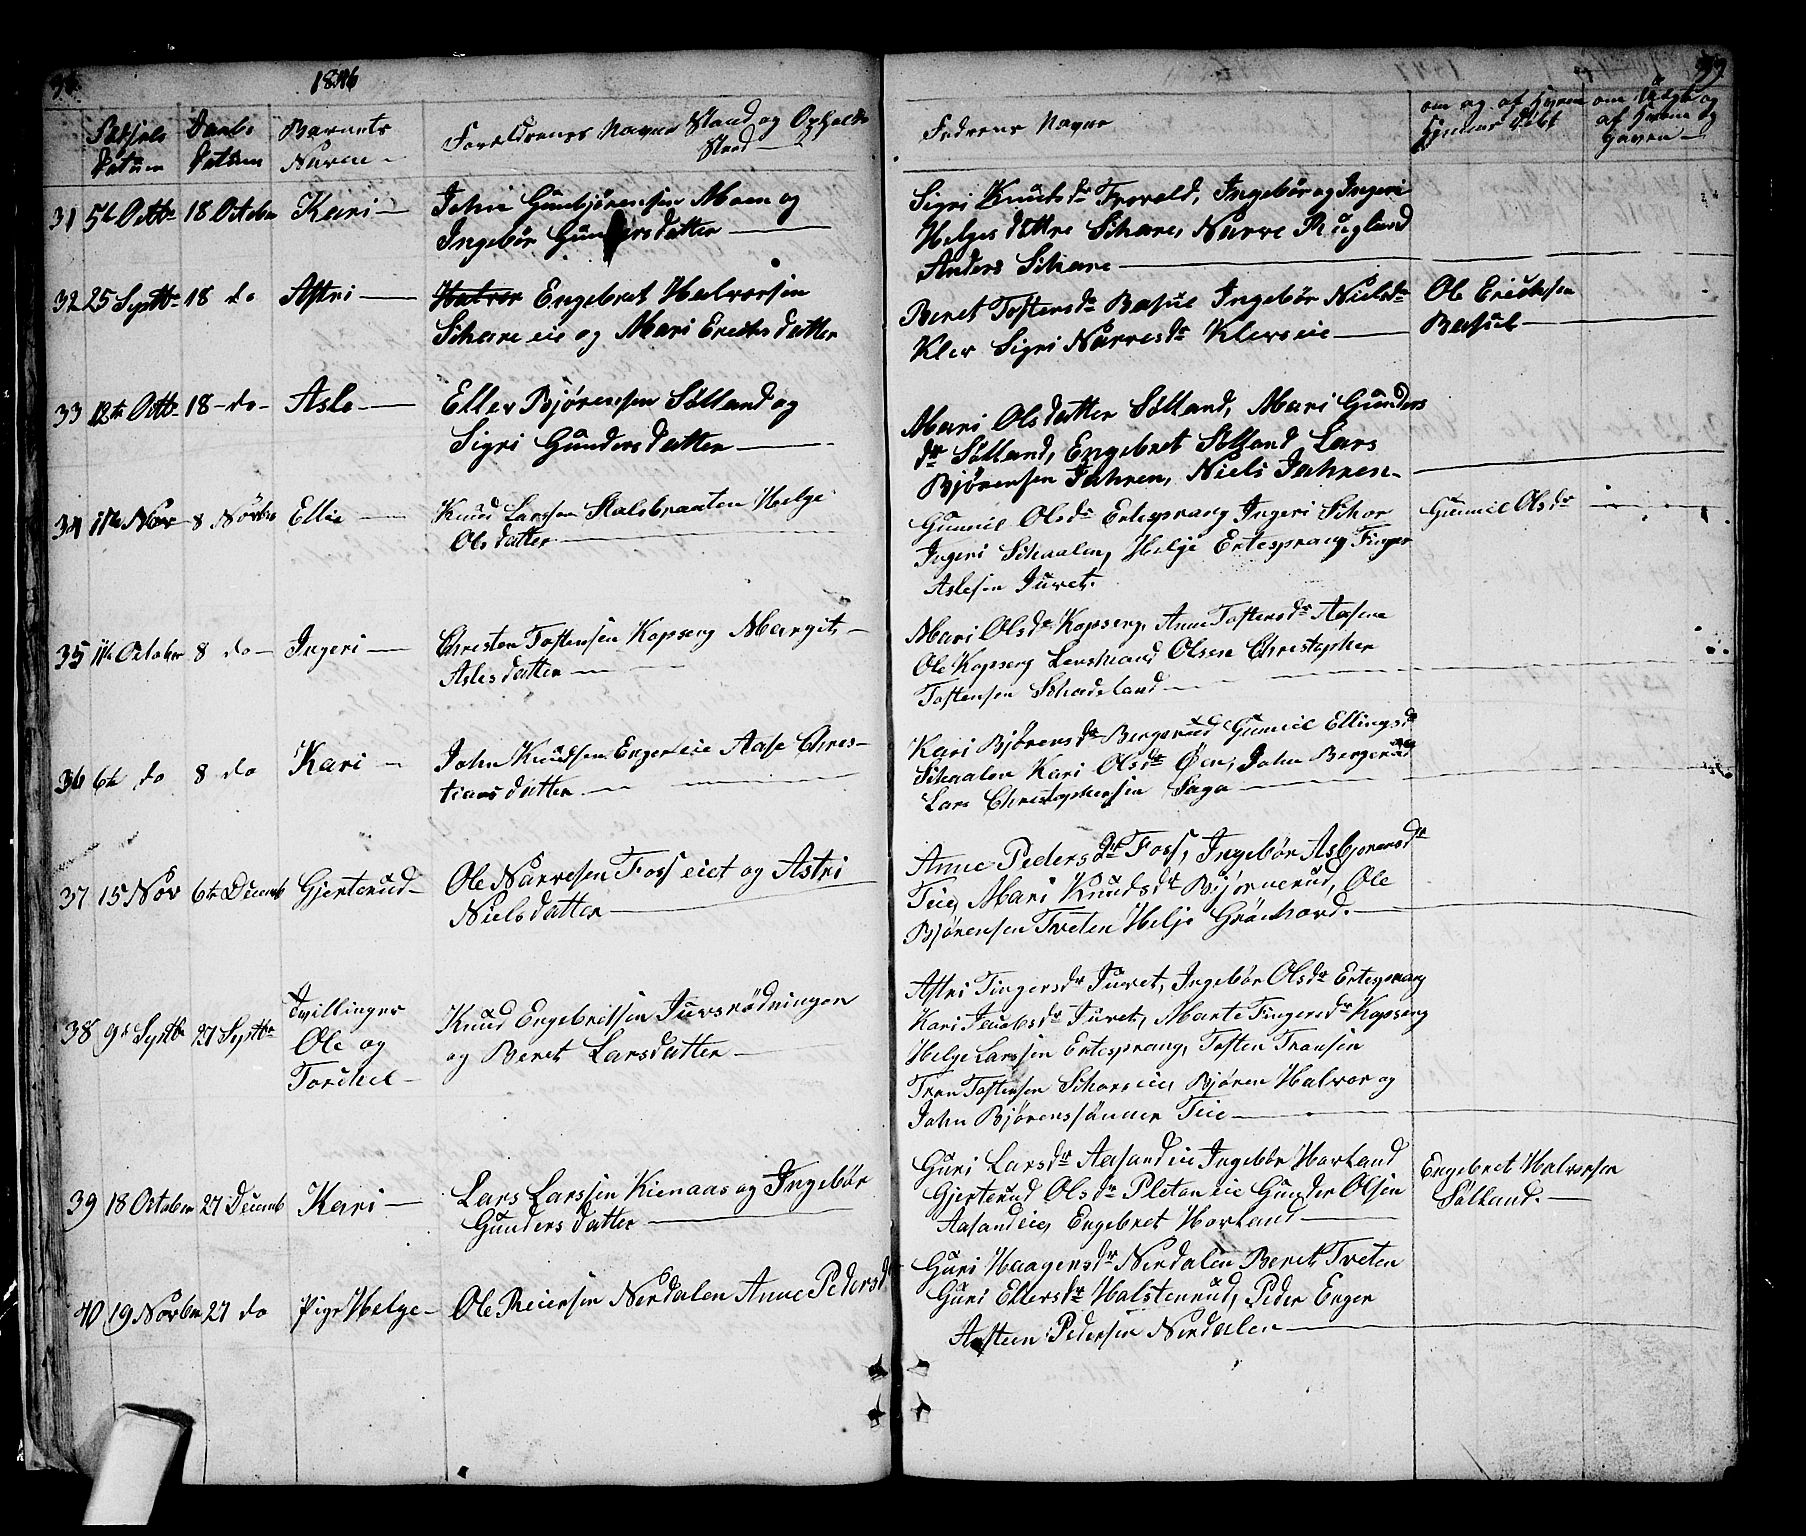 1846
99
Fødsels Datum
Daabs Datum
Barnets Navn
Forældrenes Navne Stand og Opholds Sted
Fadderes Navne
om og af hvem Hjemmedøbt
31 5te Octbr 18 October Kari
John Gunbjørensen Moen og
Ingebør Gundersdatter
Sigri Knutsdr Trovold, Ingebør og Ingeri
Helges døttre Skare, Narve Ruglund
Anders Skare
32 25 Septbr 18 do Astri
Halvor Engebret Halvorsen
Skare eie og Mari Erichsdatter
Beret Tostensdr Basul Ingebør Nielsdr
Klev Sigri Narvesdr Klevseie
Ole Erichsen
Basul
33 12te Octbr 18 do Asle
Ellev Bjørensen Sølland og
Sigri Gundersdatter
Mari Olsdatter Sølland, Mari Gunders
dr Sølland, Engebret Sølland Lars
Bjørensen Jahren, Niels Jahren
34 1te Nov 8 Novbr Ellie
Knud Larssen Skalsbraaten Helge
Olsdatter
Gunnil Olsdr Ertesprang Ingeri Skar
Ingeri Skaalen, Helje Ertesprang Finger
Aslesen Juvet.
Gunnil Olsdr
35 11te October 8 do Ingeri
Christen Tostensen Kopseng Margit
Aslesdatter
Mari Olsdr Kopseng, Anne Tostensdr Aasene
Ole Kopseng Lensmand Olsen Christopher
Tostensen Skadeland
36 6te do 8 do Kari
John Knudsen Enger eie Aase Chris-
tiansdatter
Kari Bjørensdr Bergerud Gunnil Ellingsdr
Skaalen Kari Olsdr Øen, John Bergerud
Lars Christophersen Saga
37 15 Nov 6te Decemb Gjerterud
Ole Narvesen Foss eiet og Astri
Nielsdatter
Anne Pedersdr Foss, Ingebør Asbjorensdr
Teie, Mari Knudsdr Bjørnerud, Ole
Bjørensen Tveten Helje
38 9de Septbr 27 Septbr Tvillinger
Ole og
Torchel
Knud Engebretsen Juvsrødningen
og Beret Larsdatter
Astri Fingersdr Juvet, Ingebør Olsdr Ertesprang
Kari Jacobsdr Juvet, Marte Fingersdr Kopseng
Helge Larssen Ertesprang, Tosten Transen
Tran Tostensen Skare eie, Bjøren Halvor og
John Bjørenssønner Teie
39 18 October 27 Decemb Kari
Lars Larssen Kienaas og Ingebør
Gundersdatter
Guri Larsdr Aasand eie Ingebør Havland
Gjerterud Olsdr Pleten eie Gunder Olsen
Aasandeie, Engebret Havland
Engebret Halvorsen
Sølland.
40 19 Novbr 27 do Pige Helge
Ole Reiersen Nerdalen Anne Pedersd
Guri Haagensdr Nerdalen Beret Tveten
Guri Ellersdr Halstenrud, Peder Enger
Asteen Pedersen Nerdalen